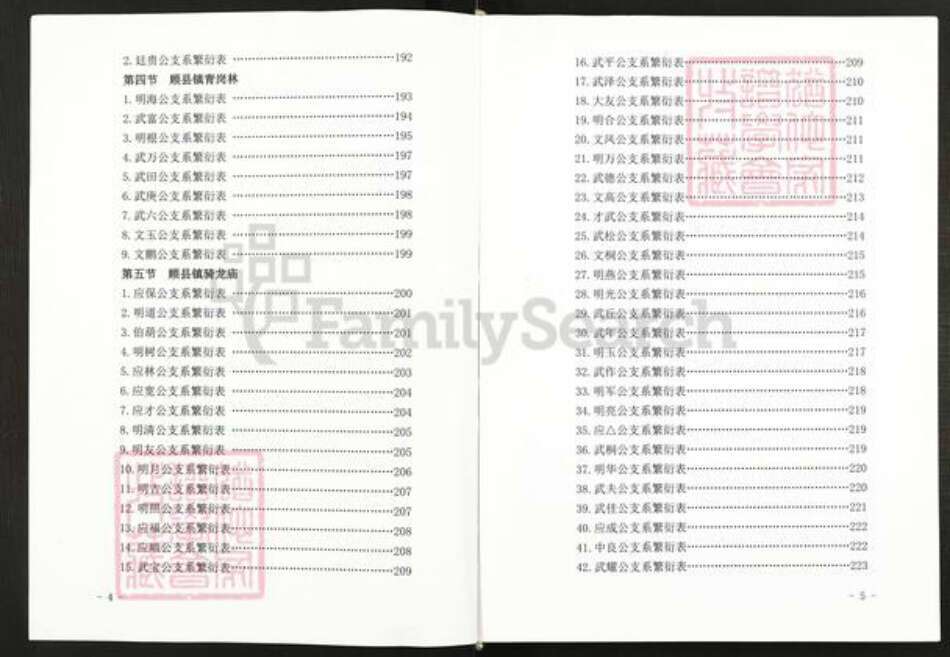 2. 廷贵公支系繁衍表 ……………………192
第四节 顾县镇青岗林
1. 明海公支系繁衍表 ……………………193
2. 武富公支系繁衍表 ……………………194
3. 明根公支系繁衍表 ……………………195
4. 武万公支系繁衍表 ……………………197
5. 武田公支系繁衍表 ……………………197
6. 武庚公支系繁衍表 ……………………198
7. 武六公支系繁衍表 ……………………198
8. 文玉公支系繁衍表 ……………………199
9. 文鹏公支系繁衍表 ……………………199
第五节 顾县镇骑龙庙
1. 应保公支系繁衍表 ……………………200
2. 明道公支系繁衍表 ……………………201
3. 伯葫公支系繁衍表 ……………………201
4. 明树公支系繁衍表 ……………………202
5. 应林公支系繁衍表 ……………………203
6. 应宽公支系繁衍表 ……………………204
7. 应才公支系繁衍表 ……………………204
8. 明清公支系繁衍表 ……………………205
9. 明友公支系繁衍表 ……………………205
10. 明月公支系繁衍表……………………206
11. 明吉公支系繁衍表……………………207
12. 明照公支系繁衍表……………………207
13. 应福公支系繁衍表……………………208
14. 应顺公支系繁衍表……………………208
15. 武宝公支系繁衍表……………………209
- 4
16. 武平公支系繁衍表……………………209
17. 武泽公支系繁衍表……………………210
18. 大友公支系繁衍表……………………210
19. 明合公支系繁衍表……………………211
20. 文凤公支系繁衍表……………………211
21. 明万公支系繁衍表……………………211
22. 武德公支系繁衍表……………………212
23. 文高公支系繁衍表……………………213
24. 才武公支系繁衍表……………………214
25. 武松公支系繁衍表……………………214
26. 文桐公支系繁衍表……………………215
27. 明燕公支系繁衍表……………………215
28. 明光公支系繁衍表……………………216
29. 武丘公支系繁衍表……………………216
30. 武年公支系繁衍表……………………217
31. 明玉公支系繁衍表……………………217
32. 武作公支系繁衍表……………………218
33. 明军公支系繁衍表……………………218
34. 明亮公支系繁衍表……………………219
35. 应△公支系繁衍表……………………219
36. 武桐公支系繁衍表……………………219
37. 明华公支系繁衍表……………………220
38. 武夫公支系繁衍表……………………220
39. 武佳公支系繁衍表……………………221
40. 应成公支系繁衍表……………………222
41. 中良公支系繁衍表……………………222
42. 武耀公支系繁衍表……………………223
- 5 -
FamilySearch